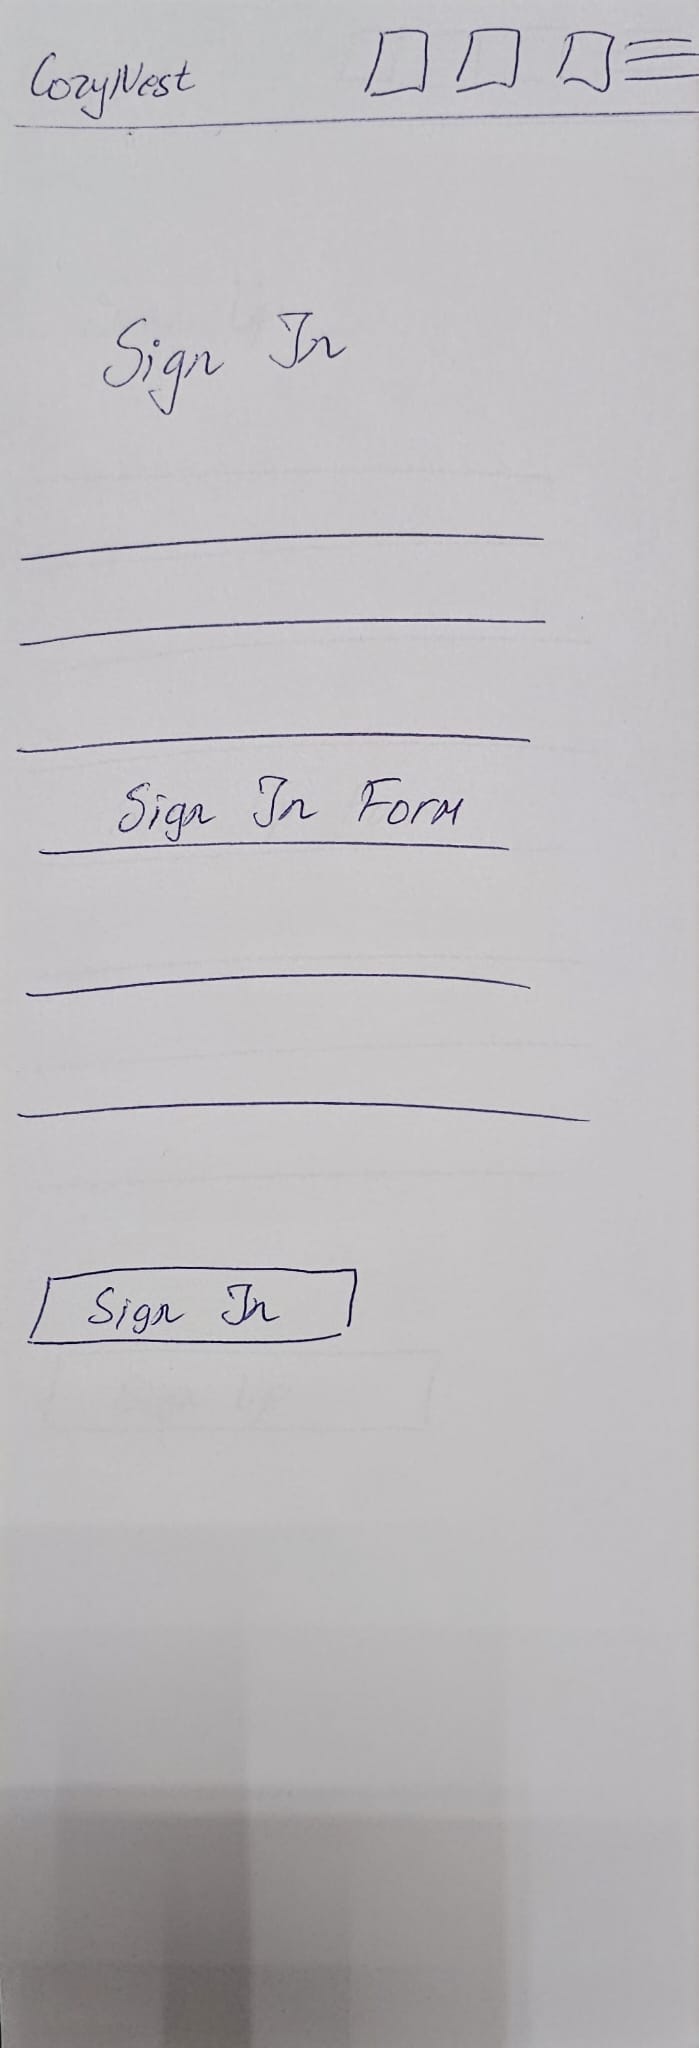 CozyNest
Sign In
Sign In Form
Sign In